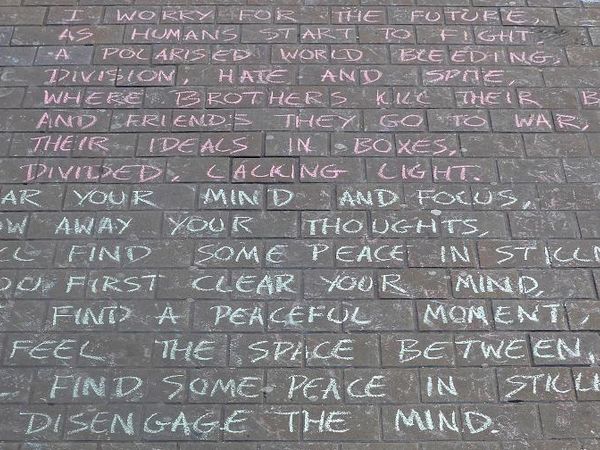 I WORRY FOR THE FUTURE,
AS HUMANS START TO FIGHT.
A POLARISED WORLD BLEEDING,
DIVISION, HATE AND SPITE,
WHERE BROTHERS KILL THEIR B
AND FRIENDS THEY GO TO WAR,
THEIR IDEALS IN BOXES,
DIVIDED, LACKING LIGHT.
AR YOUR MIND AND FOCUS,
OW AWAY YOUR THOUGHTS,
LL FIND SOME PEACE IN STILLN
OU FIRST CLEAR YOUR MIND,
FIND A PEACEFUL MOMENT,
FEEL THE SPACE BETWEEN,
FIND SOME PEACE IN STILL
DISENGAGE THE MIND.